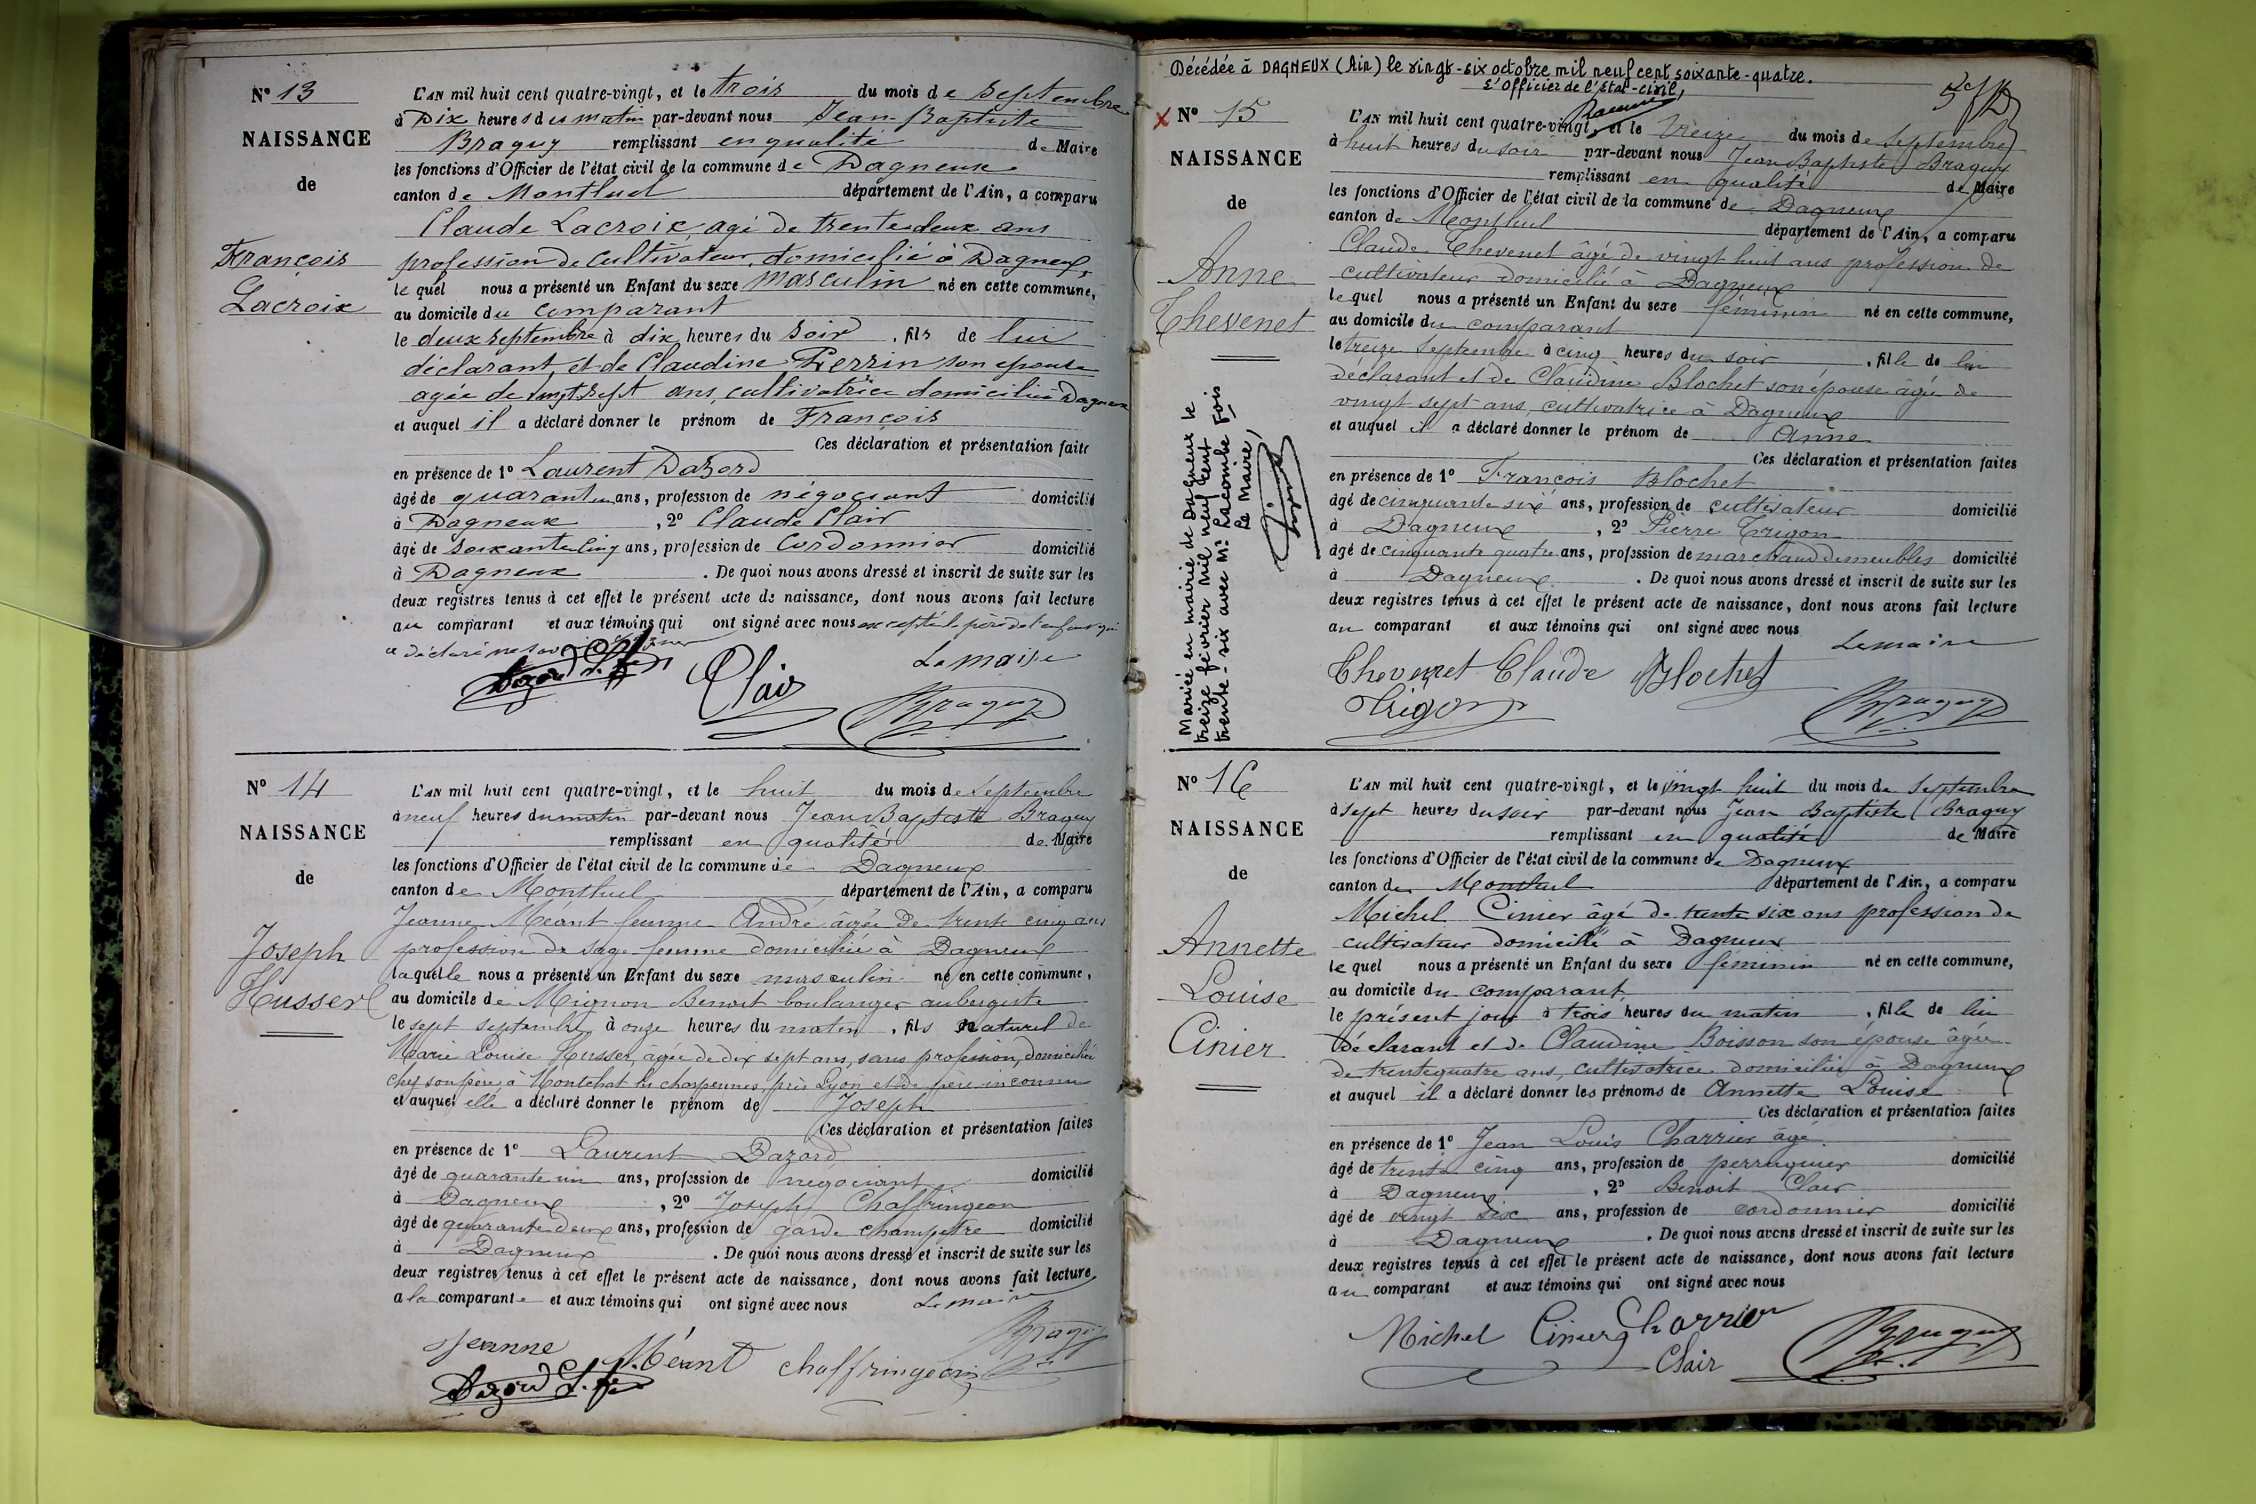 N° 13
NAISSANCE
de
François
Lacroix
L'AN mil huit cent quatre-vingt, et le trois du mois de Septembre
à Dix heures du matin par-devant nous Jean-Baptiste
Braguy remplissant en qualité de Maire
les fonctions d'Officier de l'état civil de la commune de Dagneux
canton de Montluel département de l'Ain, a comparu
Claude Lacroix agé de trente deux ans
profession de Cultivateur, domicilié à Dagneux,
lequel nous a présenté un Enfant du sexe masculin né en cette commune,
au domicile du comparant
le deux septembre à dix heures du soir, fils de lui
déclarant et de Claudine Perrin son épouse
agée de vingt sept ans, cultivatrice domiciliée Dagneux
et auquel il a déclaré donner le prénom de François
Ces déclaration et présentation faite
en présence de 1° Laurent Dazord
âgé de quarante un ans, profession de négociant domicilié
à Dagneux, 2° Claude Clair
âgé de soixante cinq ans, profession de Cordonnier domicilié
à Dagneux. De quoi nous avons dressé et inscrit de suite sur les
deux registres tenus à cet effet le présent acte de naissance, dont nous avons fait lecture
au comparant et aux témoins qui ont signé avec nous excepté le père de l'enfant qui
a déclaré ne savoir signer
Le maire
Dazord Clair Braguy
N° 14
NAISSANCE
de
Joseph
Husser
L'AN mil huit cent quatre-vingt, et le huit du mois de Septembre
à neuf heures du matin par-devant nous Jean Baptiste Braguy
remplissant en qualité de Maire
les fonctions d'Officier de l'état civil de la commune de Dagneux
canton de Montluel département de l'Ain, a comparu
Jeanne Méant femme André âgée de trente cinq ans
profession de sage femme domiciliée à Dagneux
laquelle nous a présenté un Enfant du sexe masculin né en cette commune,
au domicile de Mignon Benoit boulanger aubergiste
le sept septembre à onze heures du matin, fils naturel de
Marie Louise Husser, âgée de dix sept ans, sans profession, domiciliée
chez son père, à Montchat les charpennes, près Lyon et de père inconnu
et auquel elle a déclaré donner le prénom de Joseph
Ces déclaration et présentation faites
en présence de 1° Laurent Dazord
âgé de quarante un ans, profession de négociant domicilié
à Dagneux, 2° Joseph Chaffringeon
âgé de quarante deux ans, profession de garde champêtre domicilié
à Dagneux. De quoi nous avons dressé et inscrit de suite sur les
deux registres tenus à cet effet le présent acte de naissance, dont nous avons fait lecture
a la comparante et aux témoins qui ont signé avec nous Le maire
Jeanne Méant Chaffringeon Braguy
Dazord
Décédée à DAGNEUX (Ain) le vingt-six octobre mil neuf cent soixante-quatre.
L'Officier de l'état-civil,
N° 15
NAISSANCE
de
Anne
Thevenet
Mariée en mairie de Dagneux le
treize février mil neuf cent
trente-six avec Mr Lacombe Fois
Le Maire,
L'AN mil huit cent quatre-vingt, et le treize du mois de Septembre
à huit heures du soir par-devant nous Jean Baptiste Braguy
remplissant en qualité de Maire
les fonctions d'Officier de l'état civil de la commune de Dagneux
canton de Montluel département de l'Ain, a comparu
Claude Thevenet âgé de vingt huit ans profession de
cultivateur domicilié à Dagneux
lequel nous a présenté un Enfant du sexe féminin né en cette commune,
au domicile du comparant
le treize Septembre à cinq heures du soir, fille de lui
déclarant et de Claudine Blochet son épouse âgée de
vingt sept ans, cultivatrice à Dagneux
et auquel il a déclaré donner le prénom de Anne
Ces déclaration et présentation faites
en présence de 1° François Blochet
âgé de cinquante six ans, profession de cultivateur domicilié
à Dagneux, 2° Pierre Trigon
âgé de cinquante quatre ans, profession de marchand de meubles domicilié
à Dagneux. De quoi nous avons dressé et inscrit de suite sur les
deux registres tenus à cet effet le présent acte de naissance, dont nous avons fait lecture
au comparant et aux témoins qui ont signé avec nous Le maire
Thevenet Claude Blochet
Trigon Braguy
N° 16
NAISSANCE
de
Annette
Louise
Cinier
L'AN mil huit cent quatre-vingt, et le vingt huit du mois de Septembre
à sept heures du soir par-devant nous Jean Baptiste Braguy
remplissant en qualité de Maire
les fonctions d'Officier de l'état civil de la commune de Dagneux
canton de Montluel département de l'Ain, a comparu
Michel Cinier âgé de trente six ans profession de
cultivateur domicilié à Dagneux
lequel nous a présenté un Enfant du sexe féminin né en cette commune,
au domicile du comparant
le présent jour à trois heures du matin, fille de lui
déclarant et de Claudine Boisson son épouse âgée
de trente quatre ans, cultivatrice domiciliée à Dagneux
et auquel il a déclaré donner les prénoms de Annette Louise
Ces déclaration et présentation faites
en présence de 1° Jean Louis Charrier âgé
âgé de trente cinq ans, profession de perruquier domicilié
à Dagneux, 2° Benoit Clair
âgé de vingt six ans, profession de cordonnier domicilié
à Dagneux. De quoi nous avons dressé et inscrit de suite sur les
deux registres tenus à cet effet le présent acte de naissance, dont nous avons fait lecture
au comparant et aux témoins qui ont signé avec nous
Michel Cinier Charrier Braguy
Clair